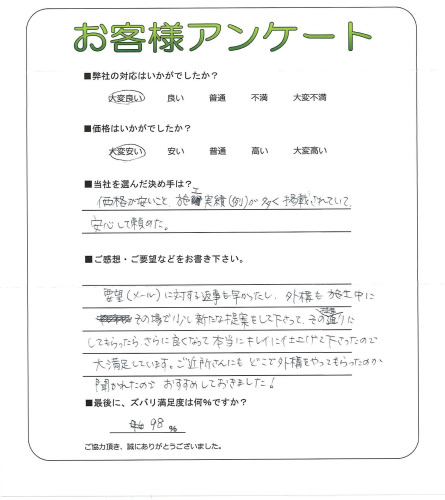 お客様アンケート
■弊社の対応はいかがでしたか?
大変良い 良い 普通 不満 大変不満
■価格はいかがでしたか?
大変安い 安い 普通 高い 大変高い
■当社を選んだ決め手は?
価格が安いこと、施工実績(例)が多く掲載されていて、
安心して頼めた。
■ご感想・ご要望などをお書き下さい。
要望(メール)に対する返事も早かったし、外構も施工中に
その場で少し新たな提案をして下さって、その通りに
してもらったら、さらに良くなって本当にキレイに仕上げて下さったので
大満足しています。ご近所さんにもどこで外構をやってもらったのか
聞かれたので おすすめしておきました!
■最後に、ズバリ満足度は何%ですか?
98 %
ご協力頂き、誠にありがとうございました。